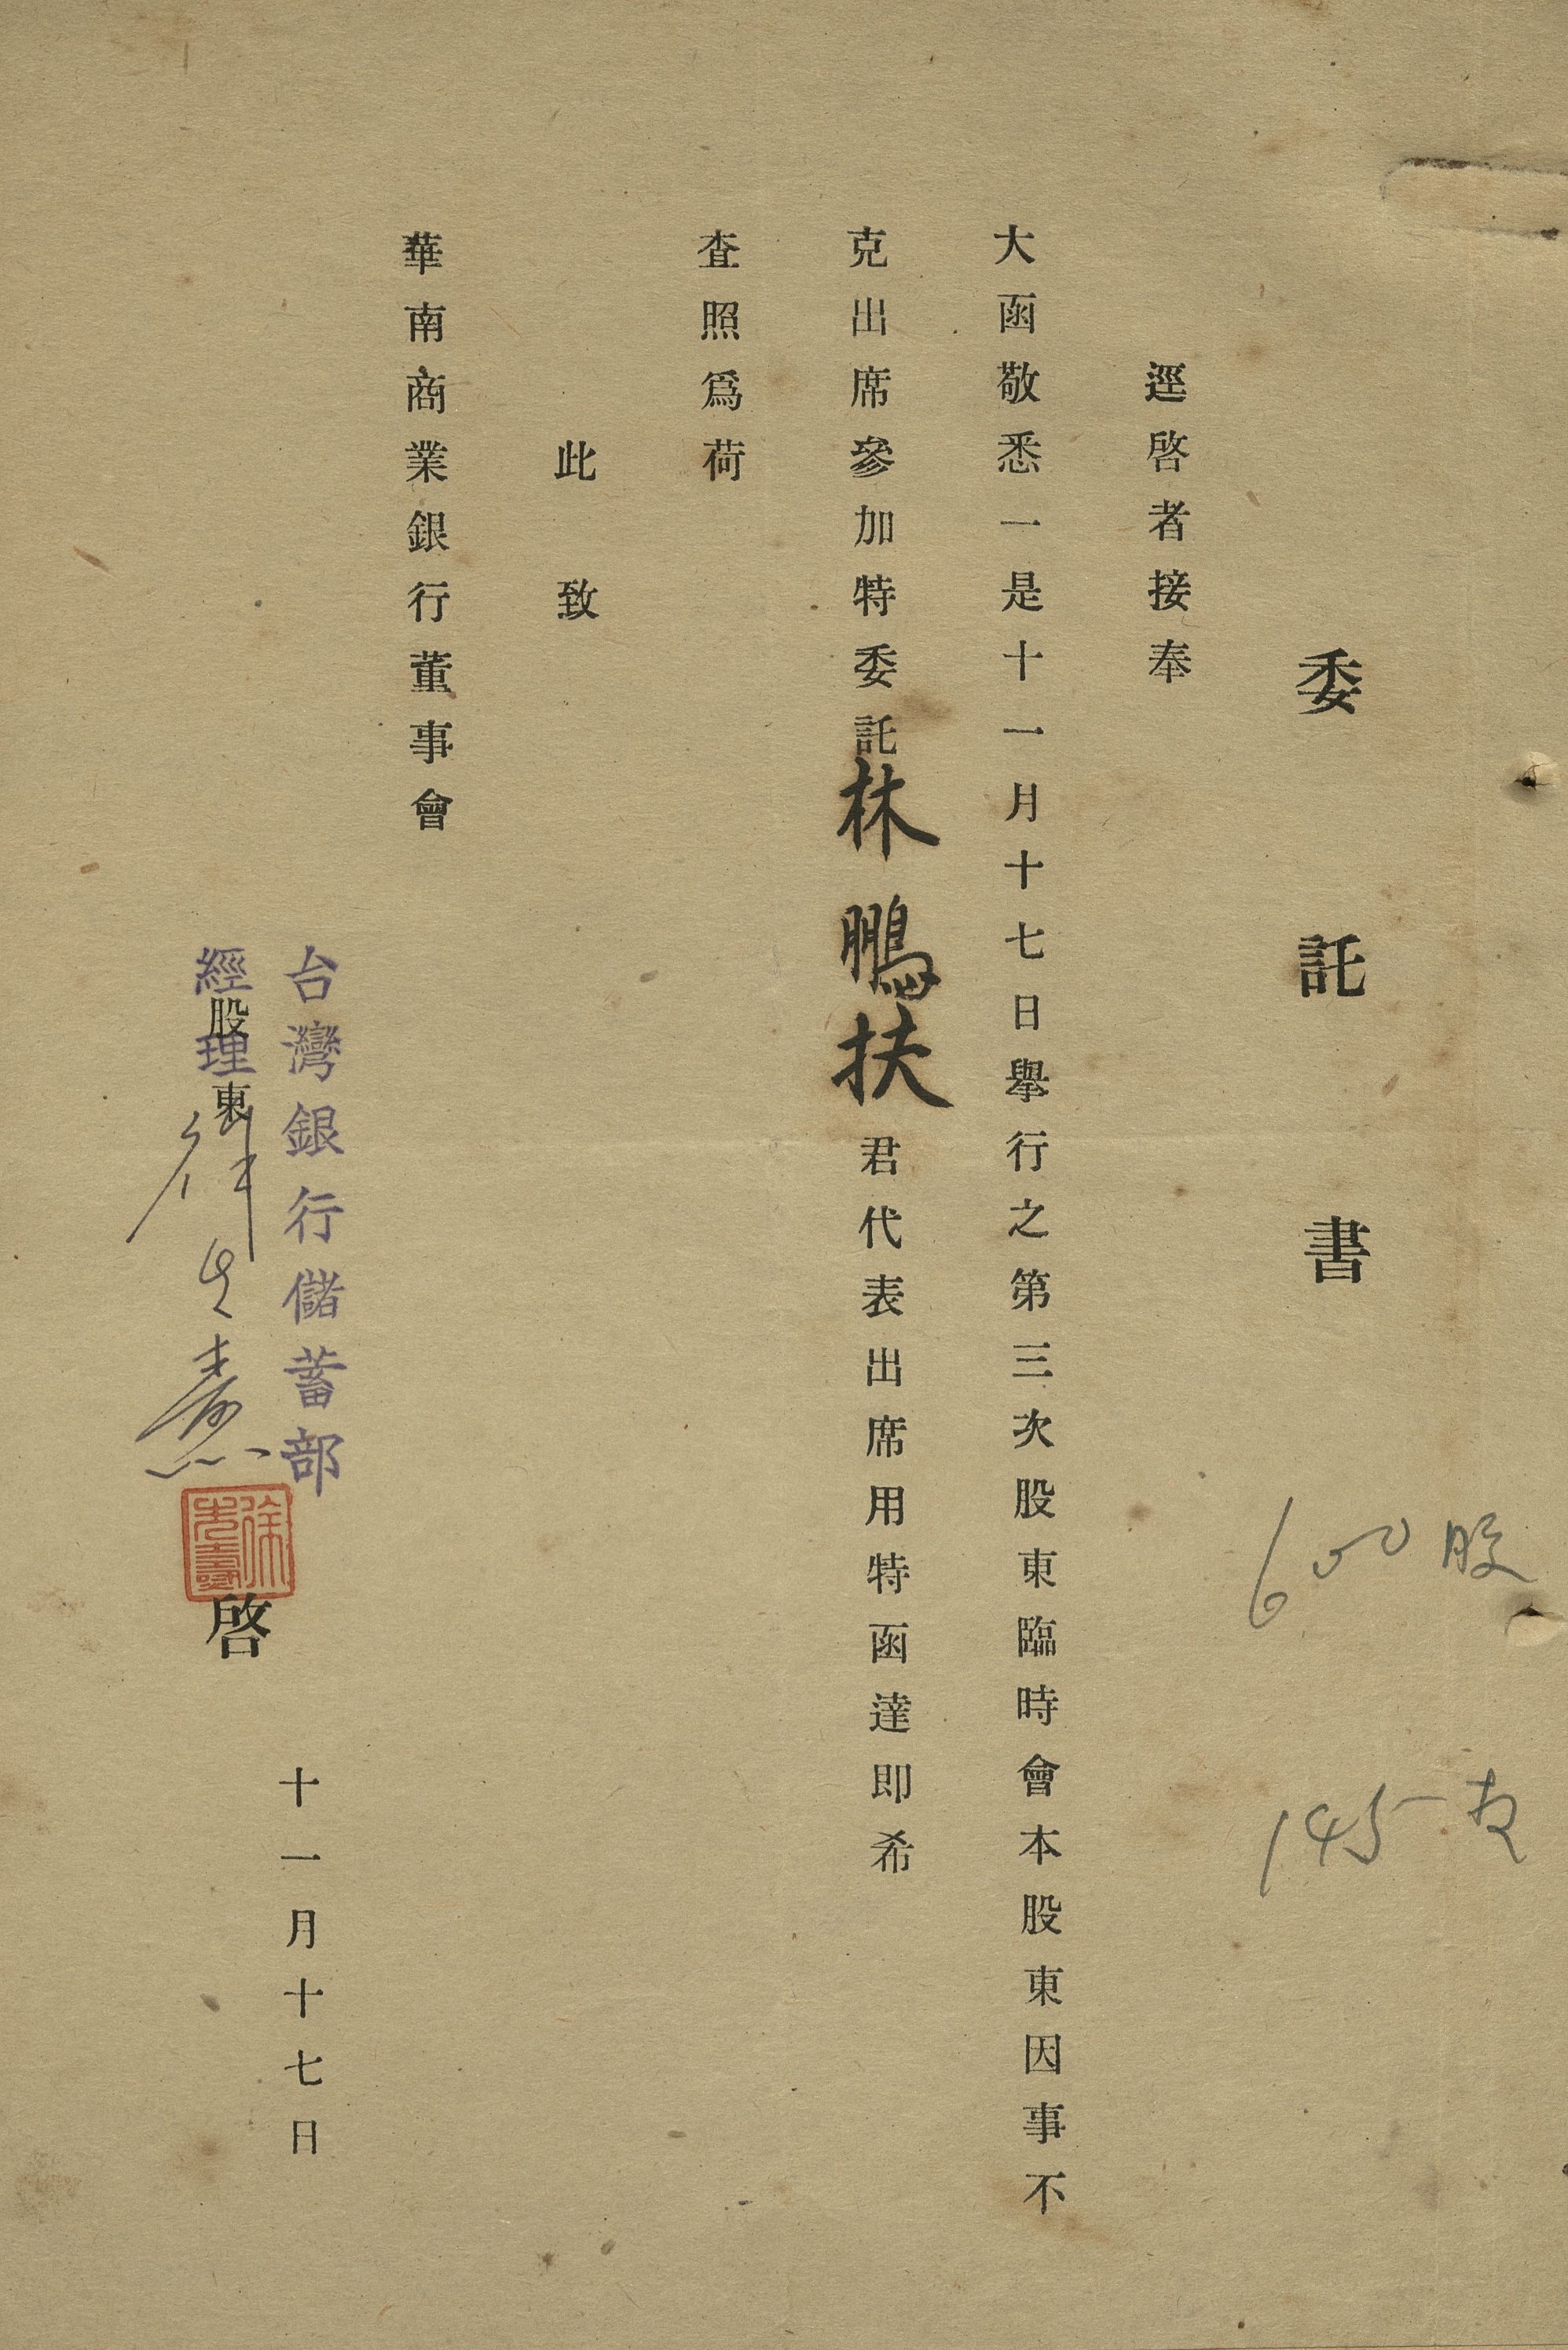 委託書
600股
145权
逕啓者接奉
大函敬悉一是十一月十七日舉行之第三次股東臨時會本股東因事不
克出席參加特委託林鵬扶君代表出席用特函達即希
查照爲荷
此致
華南商業銀行董事會
台灣銀行儲蓄部
經理
股東
徐先燾
徐先壽
啓
十一月十七日